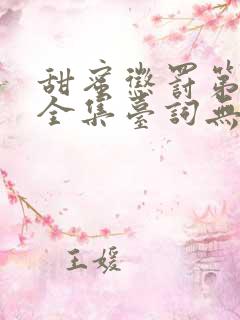 甜蜜懲罰第
全集臺詞無
王媛